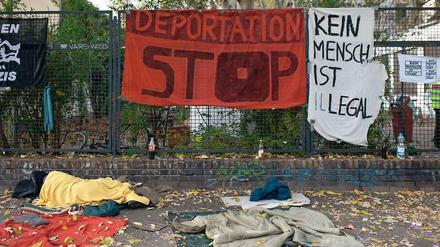 EN
ZIS
DEPORTATION
STOP
KEIN
MENSCH
IST
ILLEGAL